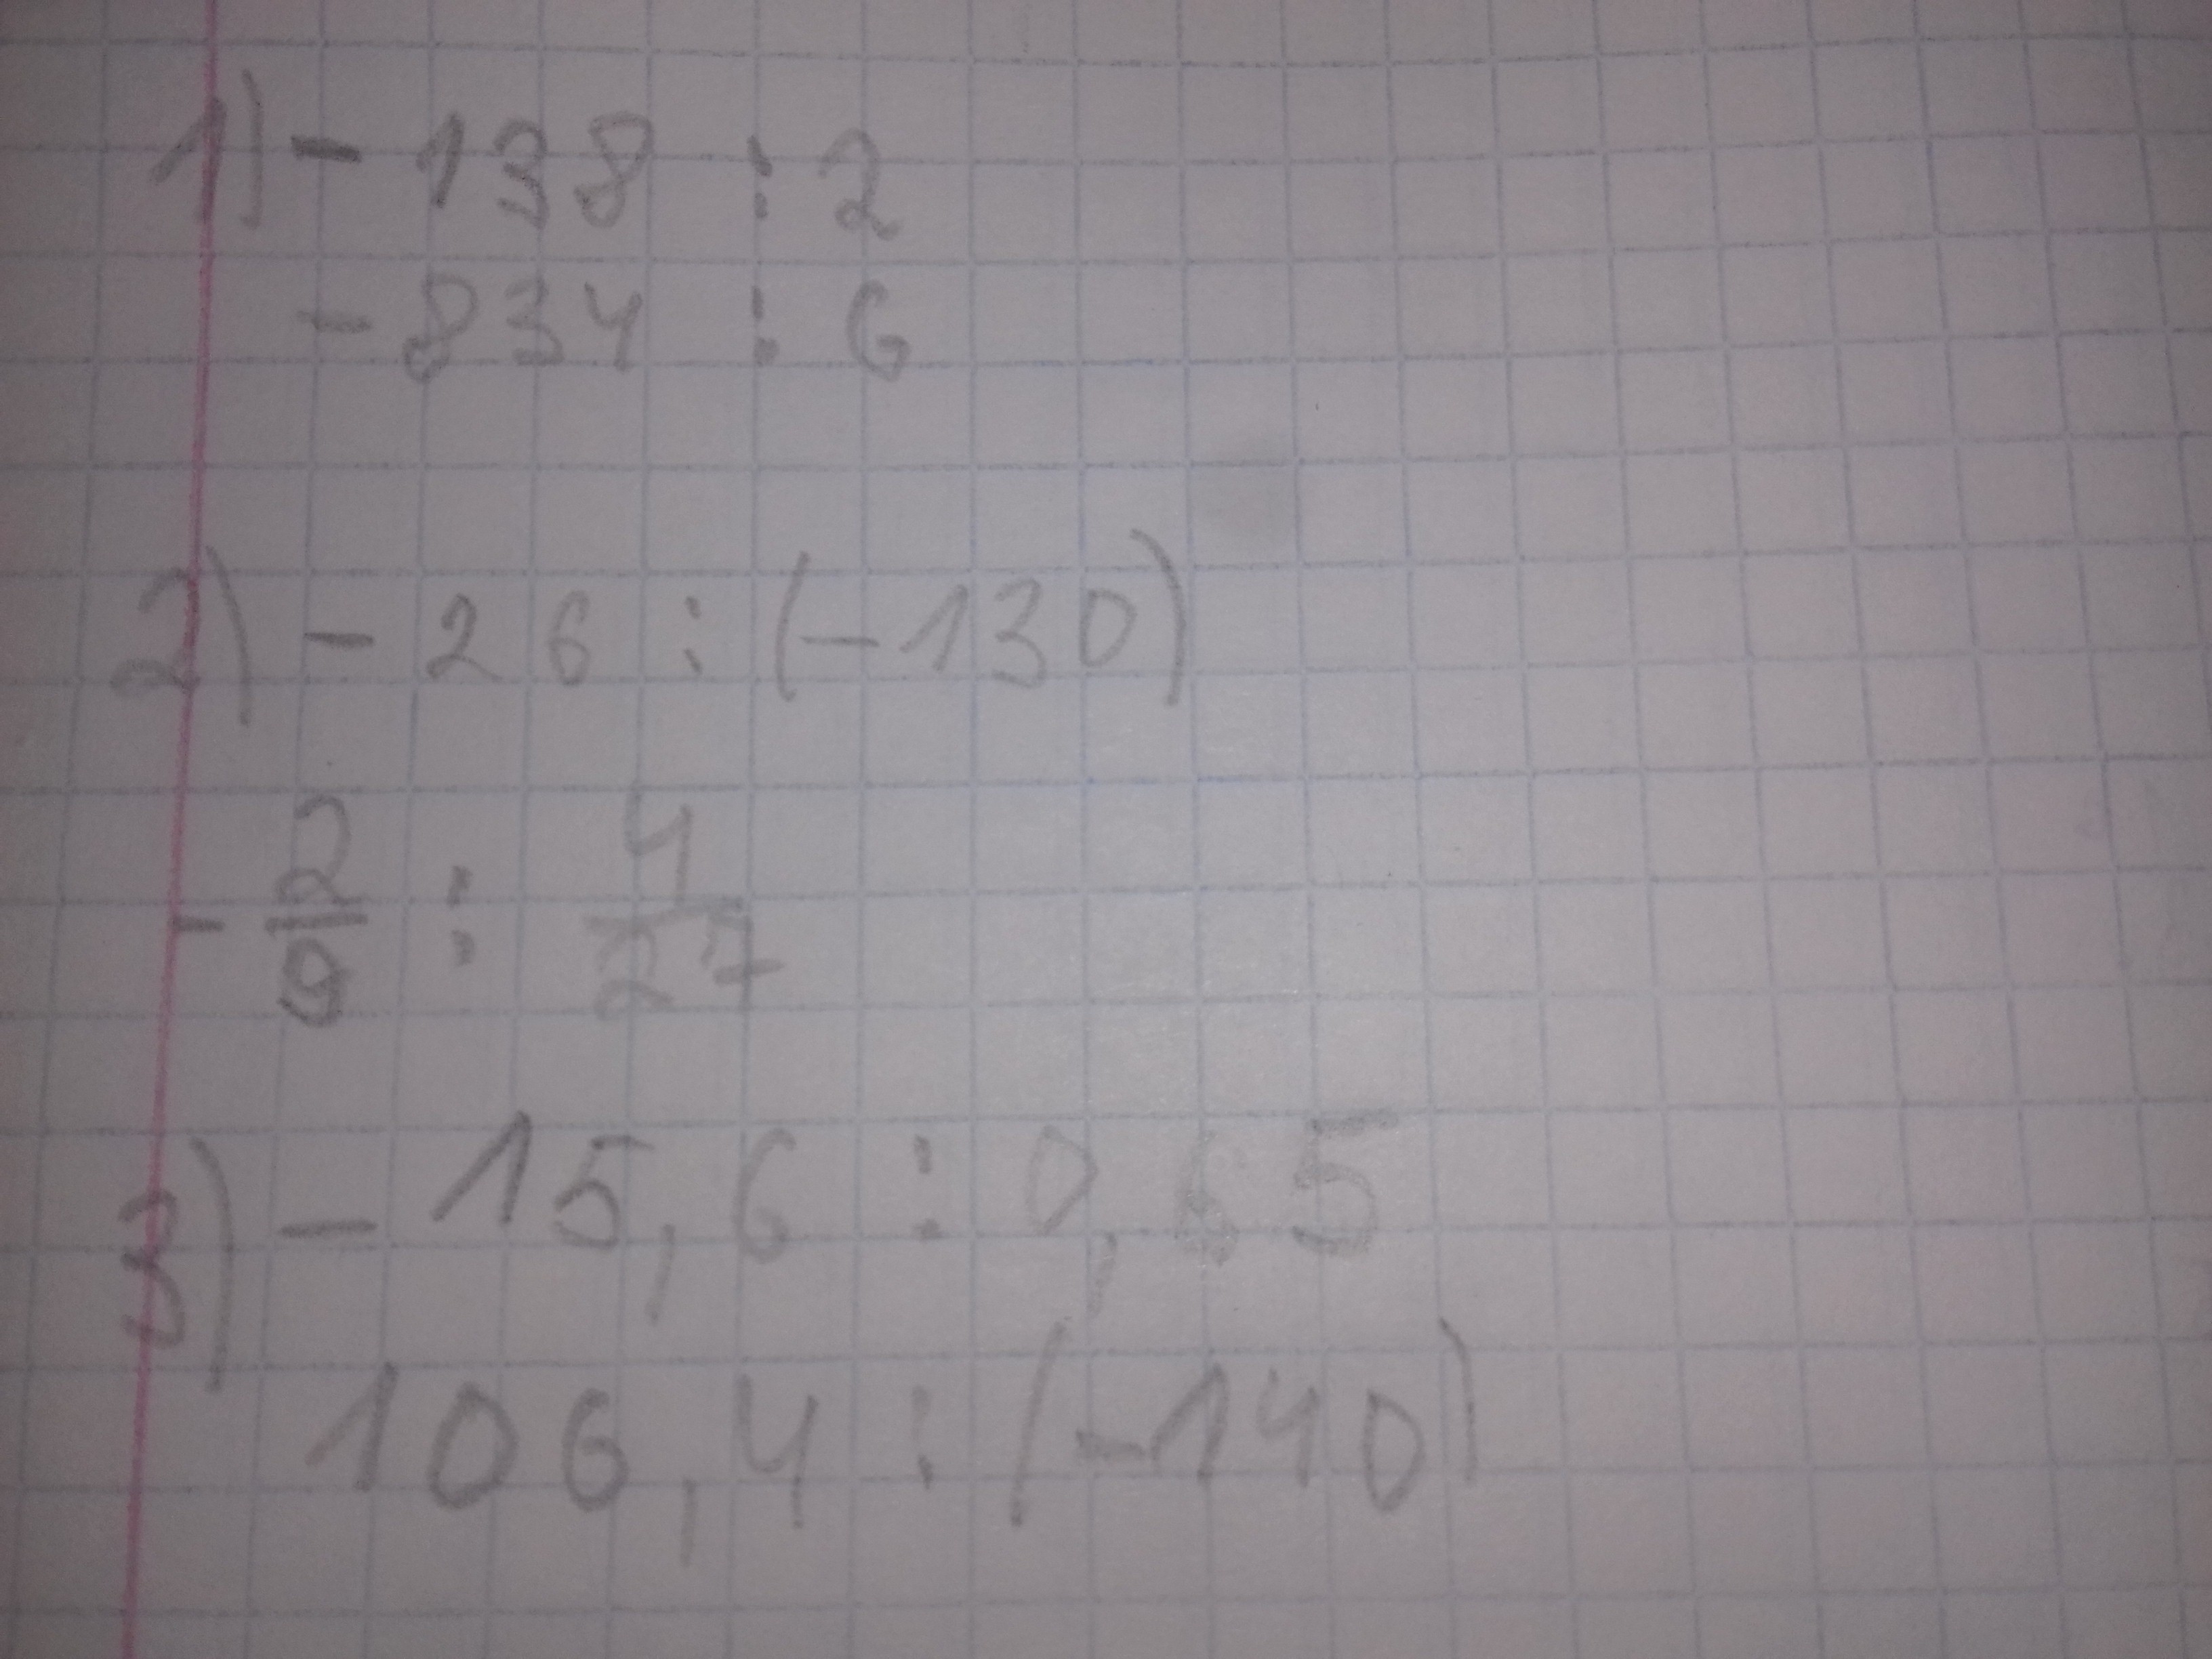 1) - 138 : 2
- 834 : 6
2) - 26 : (-130)
- 2/9 : 4/27
3) - 15,6 : 0,65
106,4 : (-140)